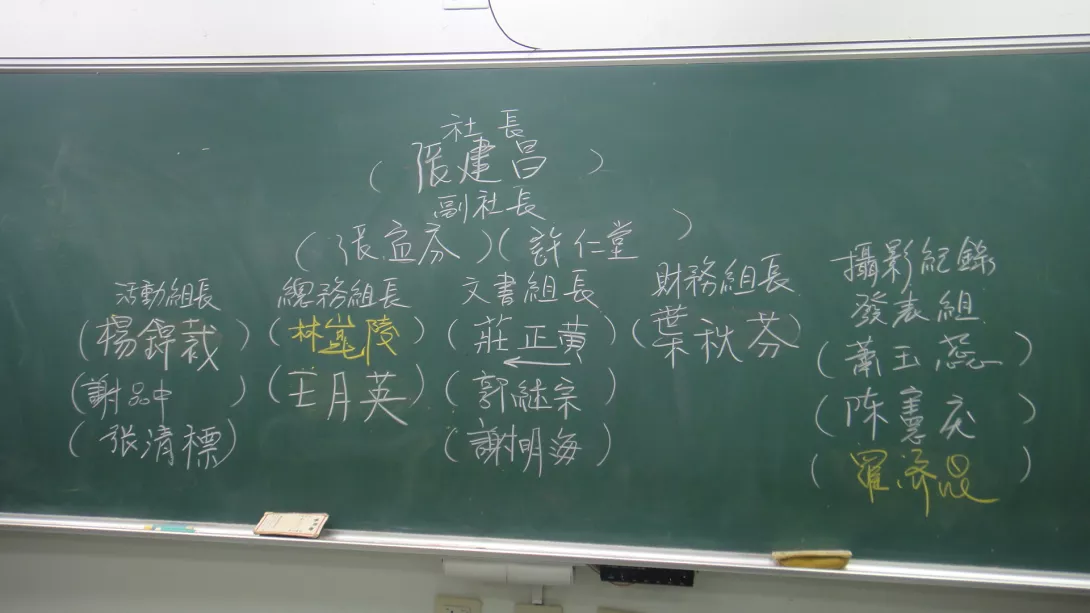 社長
(張建昌)
副社長
(張宜芬)(許仁堂)
活動組長
(楊錦裁)
(謝品中)
(张清標)
總務組長
(林崑陵)
(王月英)
文書組長
(莊正黄)
(郭継宗)
(謝明海)
財務組長
(葉秋芬)
攝影紀錄
發表組
(蕭玉蕊)
(陈憲庆)
(羅濟昆)